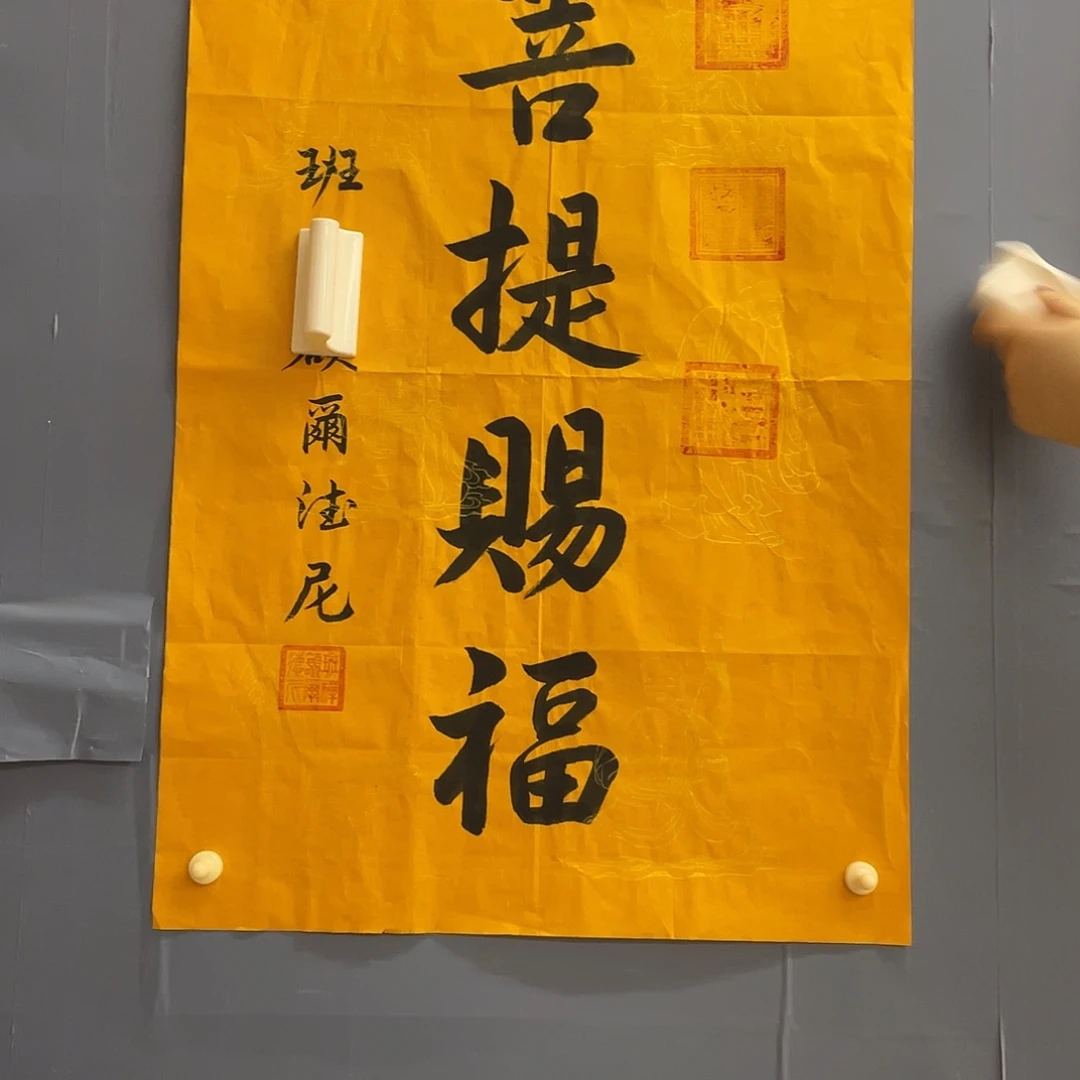 菩提賜福
班爾德尼